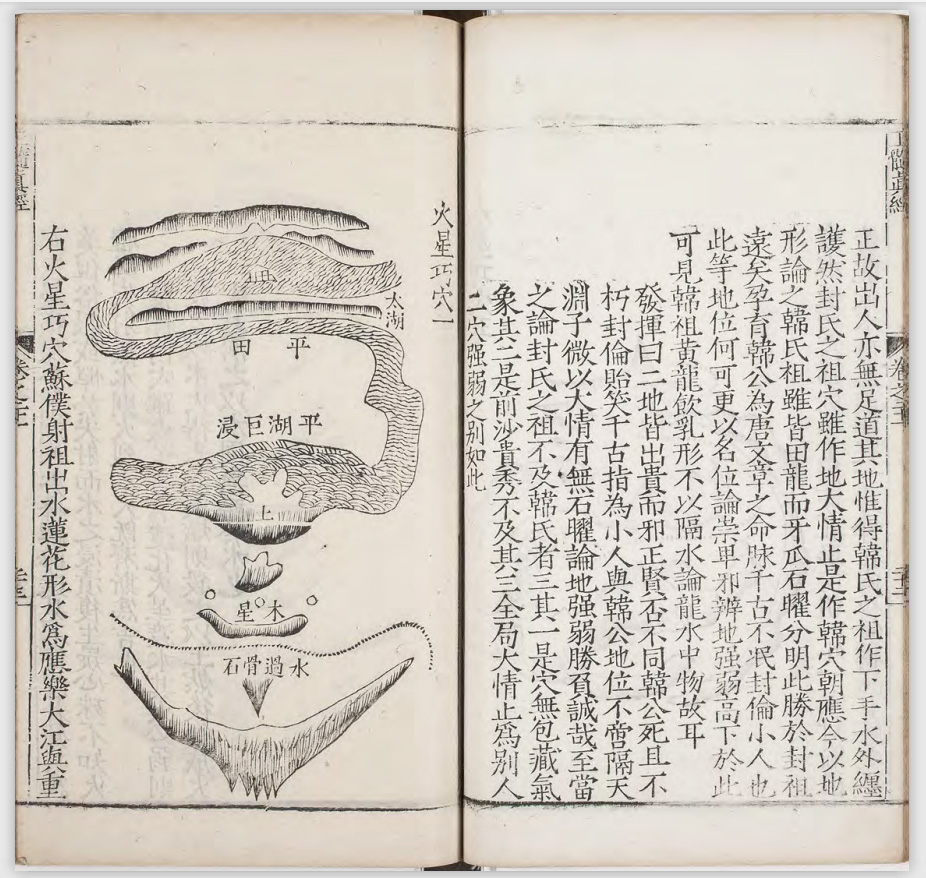 玉髓真經
正故出人亦無足道其地惟得韓氏之祖作下手水外纏
護然封氏之祖穴雖作地大情止是作韓穴朝應今以地
形論之韓氏祖雖皆田龍而牙瓜石曜分明此勝於封祖
遠矣孕育韓公為唐文章之命脉千古不泯封倫小人也
此等地位何可更以名位論崇卑邪辨地強弱高下於此
可見韓祖黃龍飲乳形不以隔水論龍水中物故耳
發揮曰二地皆出貴而邪正賢否不同韓公死且不
朽封倫貽笑千古指為小人與韓公地位不啻隔天
淵子微以大情有無石曜論地強弱勝負誠哉至當
之論封氏之祖不及韓氏者三其一是穴無包藏氣
象其二是前沙貴秀不及其三全局大情止爲別人
二穴强弱之別如此
火星巧穴一
太湖
田
平田
平湖巨浸
上
木星
水過骨石
右火星巧穴蘇僕射祖出水蓮花形水爲應樂大江與重
髓真經